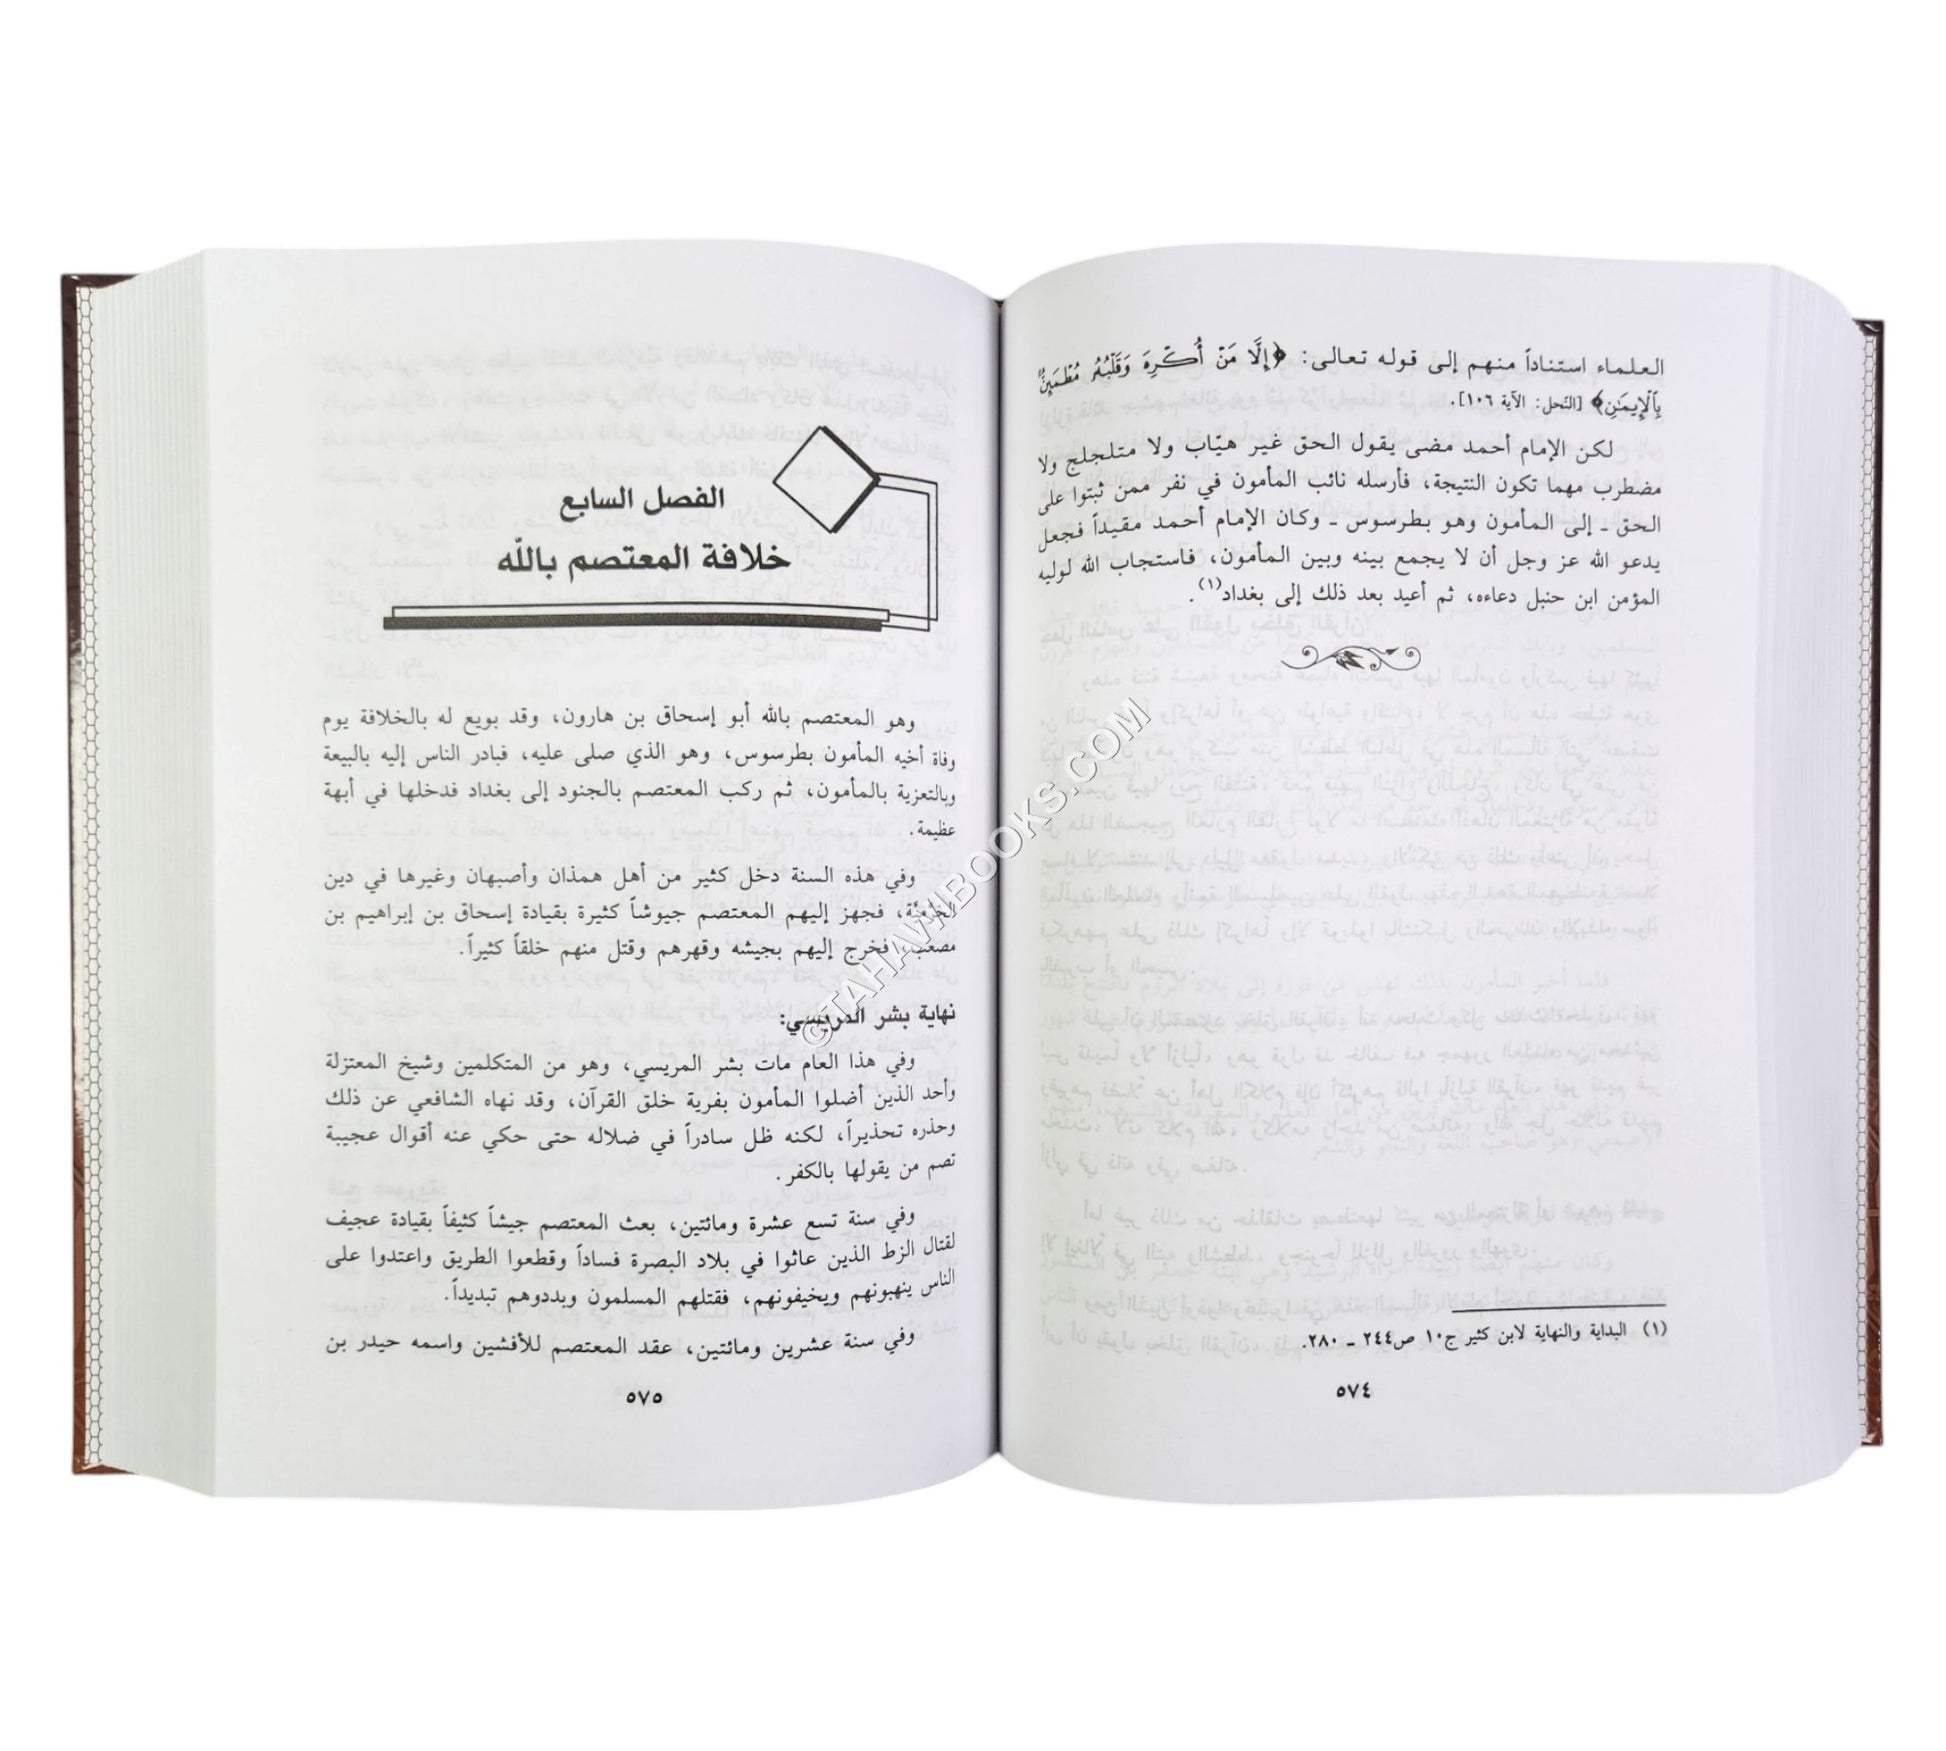 العلماء استناداً منهم إلى قوله تعالى: ﴿إِلَّا مَنْ أُكْرِهَ وَقَلْبُهُ مُطْمَئِنٌّ
بِالْإِيمَانِ﴾ [النحل: الآية ١٠٦].
لكن الإمام أحمد مضى يقول الحق غير هيّاب ولا متلجلج ولا
مضطرب مهما تكون النتيجة، فأرسله نائب المأمون في نفر ممن ثبتوا على
الحق ـ إلى المأمون وهو بطرسوس ـ وكان الإمام أحمد مقيداً فجعل
يدعو الله عز وجل أن لا يجمع بينه وبين المأمون، فاستجاب الله لوليه
المؤمن ابن حنبل دعاءه، ثم أعيد بعد ذلك إلى بغداد(١).
(١) البداية والنهاية لابن كثير ج١٠ ص٢٤٤ ـ ٢٨٠.
٥٧٤
الفصل السابع
خلافة المعتصم بالله
وهو المعتصم بالله أبو إسحاق بن هارون، وقد بويع له بالخلافة يوم
وفاة أخيه المأمون بطرسوس، وهو الذي صلى عليه، فبادر الناس إليه بالبيعة
وبالتعزية بالمأمون، ثم ركب المعتصم بالجنود إلى بغداد فدخلها في أبهة
عظيمة.
وفي هذه السنة دخل كثير من أهل همذان وأصبهان وغيرها في دين
فجهز إليهم المعتصم جيوشاً كثيرة بقيادة إسحاق بن إبراهيم بن
مصعب، فخرج إليهم بجيشه وقهرهم وقتل منهم خلقاً كثيراً.
نهاية بشر المريسي:
وفي هذا العام مات بشر المريسي، وهو من المتكلمين وشيخ المعتزلة
وأحد الذين أضلوا المأمون بفرية خلق القرآن، وقد نهاه الشافعي عن ذلك
وحذره تحذيراً، لكنه ظل سادراً في ضلاله حتى حكي عنه أقوال عجيبة
تصم من يقولها بالكفر.
وفي سنة تسع عشرة ومائتين، بعث المعتصم جيشاً كثيفاً بقيادة عجيف
لقتال الزط الذين عاثوا في بلاد البصرة فساداً وقطعوا الطريق واعتدوا على
الناس ينهبونهم ويخيفونهم، فقتلهم المسلمون وبددوهم تبديداً.
وفي سنة عشرين ومائتين، عقد المعتصم للأفشين واسمه حيدر بن
٥٧٥
©TAHAWIBOOKS.COM